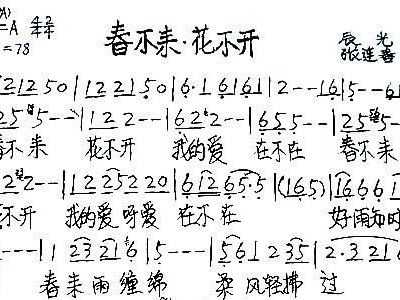 =A
=78
春不来·花不开
辰光
张连喜
2 1 2 5 0 | 1 2 2 1 5 0 | 6· 1 6 1 6 1 | 2 - - 1 6 | 5 - - 6
2 5 5 - - | 1 2 2 - - | 6 2 2 - - | 6 5 5 - - | 2 5 5 - -
不来 花不开 我的爱 在不在 春不来
2 2 - - | 1 2 2 5 2 2 0 | 6 1 2 6 5· 5 | (1 6 5) | 1 6 6 6 1
不开 我的爱 呀爱 在不在 好雨知时
- - - | 1 2 3 2 1 6 | 5 - - - | 5 6 1 2 3 5 | 2· 3 2 1 6
春来雨缠绵 柔风轻拂过